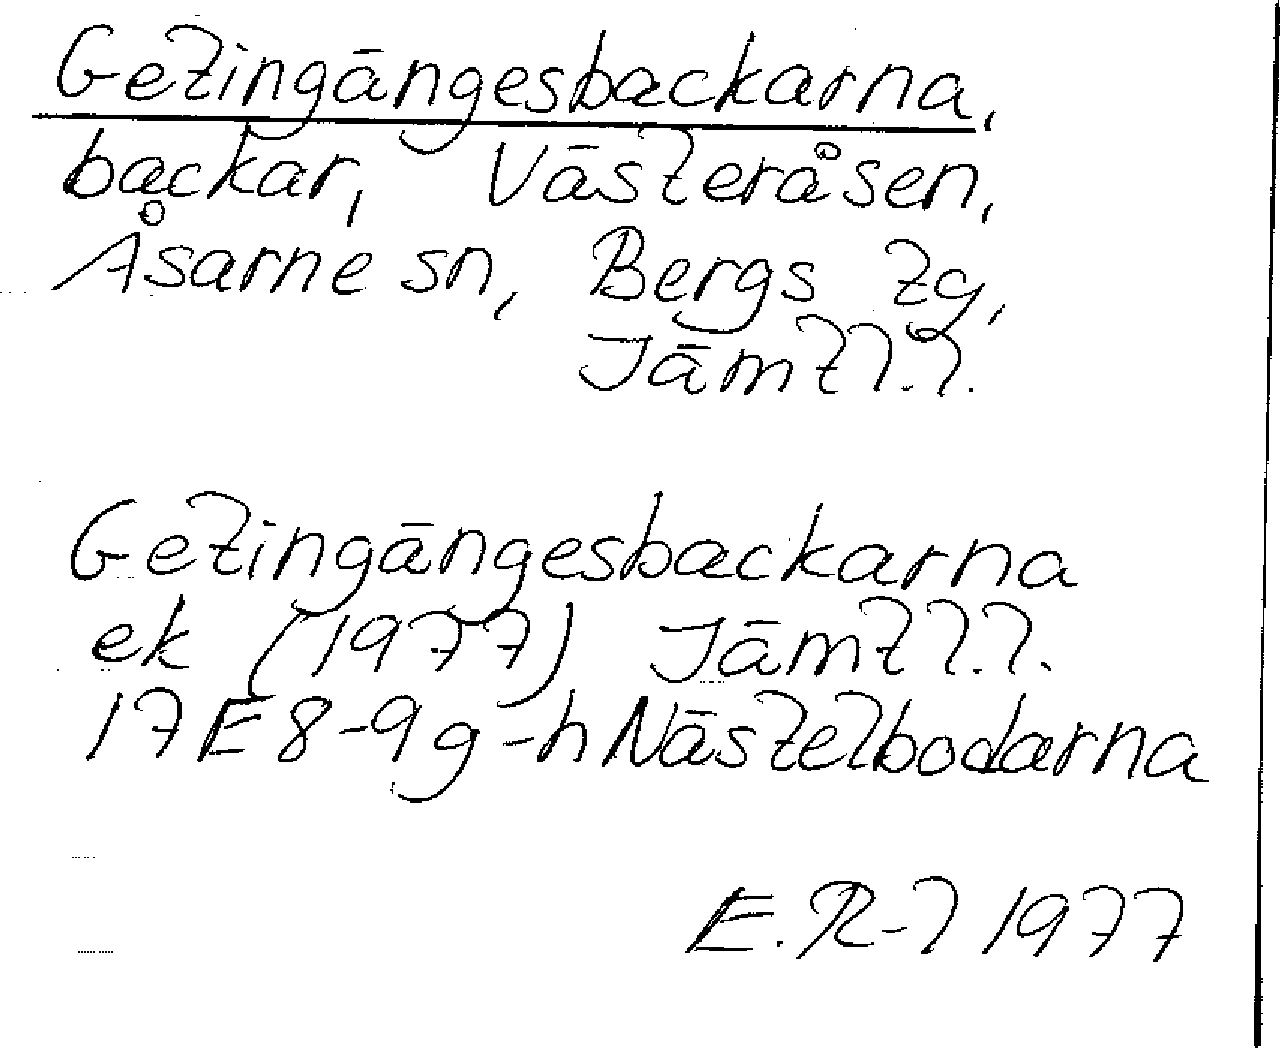 Getingängesbackarna,
backar, Västeråsen,
Åsarne sn, Bergs tg,
Jämtl.l.
Getingängesbackarna
ek (1977) Jämtl.l.
17E 8-9 g-h Nästelbodarna
E.R-l 1977